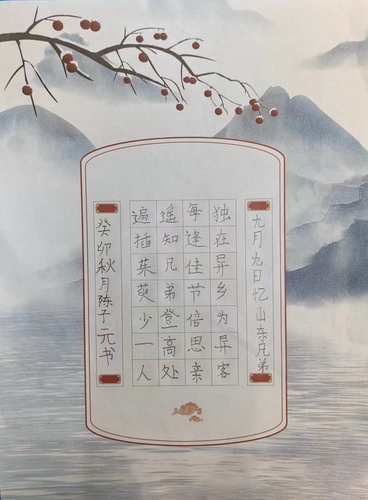 九月九日忆山东兄弟
独在异乡为异客
每逢佳节倍思亲
遥知兄弟登高处
遍插茱萸少一人
癸卯秋月陈子元书